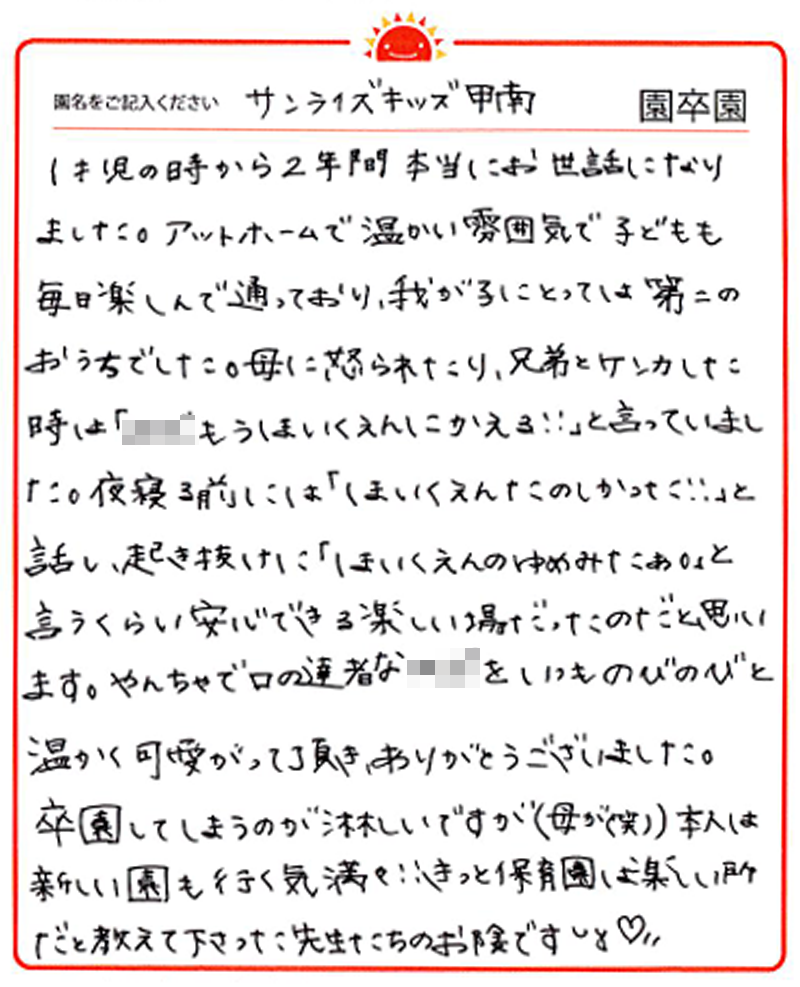 園名をご記入ください サンライズキッズ甲南 園卒園
1才児の時から2年間本当にお世話になり
ました。アットホームで温かい雰囲気で子どもも
毎日楽しんで通っており、我が子にとっては第二の
おうちでした。母に怒られたり、兄弟とケンカした
時は「もうほいくえんにかえる!!」と言っていまし
た。夜寝る前には「ほいくえんたのしかった!!」と
話し、起き抜けに「ほいくえんのゆめみたぁ。」と
言うくらい安心できる楽しい場だったのだと思い
ます。やんちゃで口の達者な をいつものびのびと
温かく可愛がって頂き、ありがとうございました。
卒園してしまうのが淋しいですが(母が(笑))本人は
新しい園も行く気満々!!きっと保育園は楽しい所
だと教えて下さった先生たちのお陰です♡